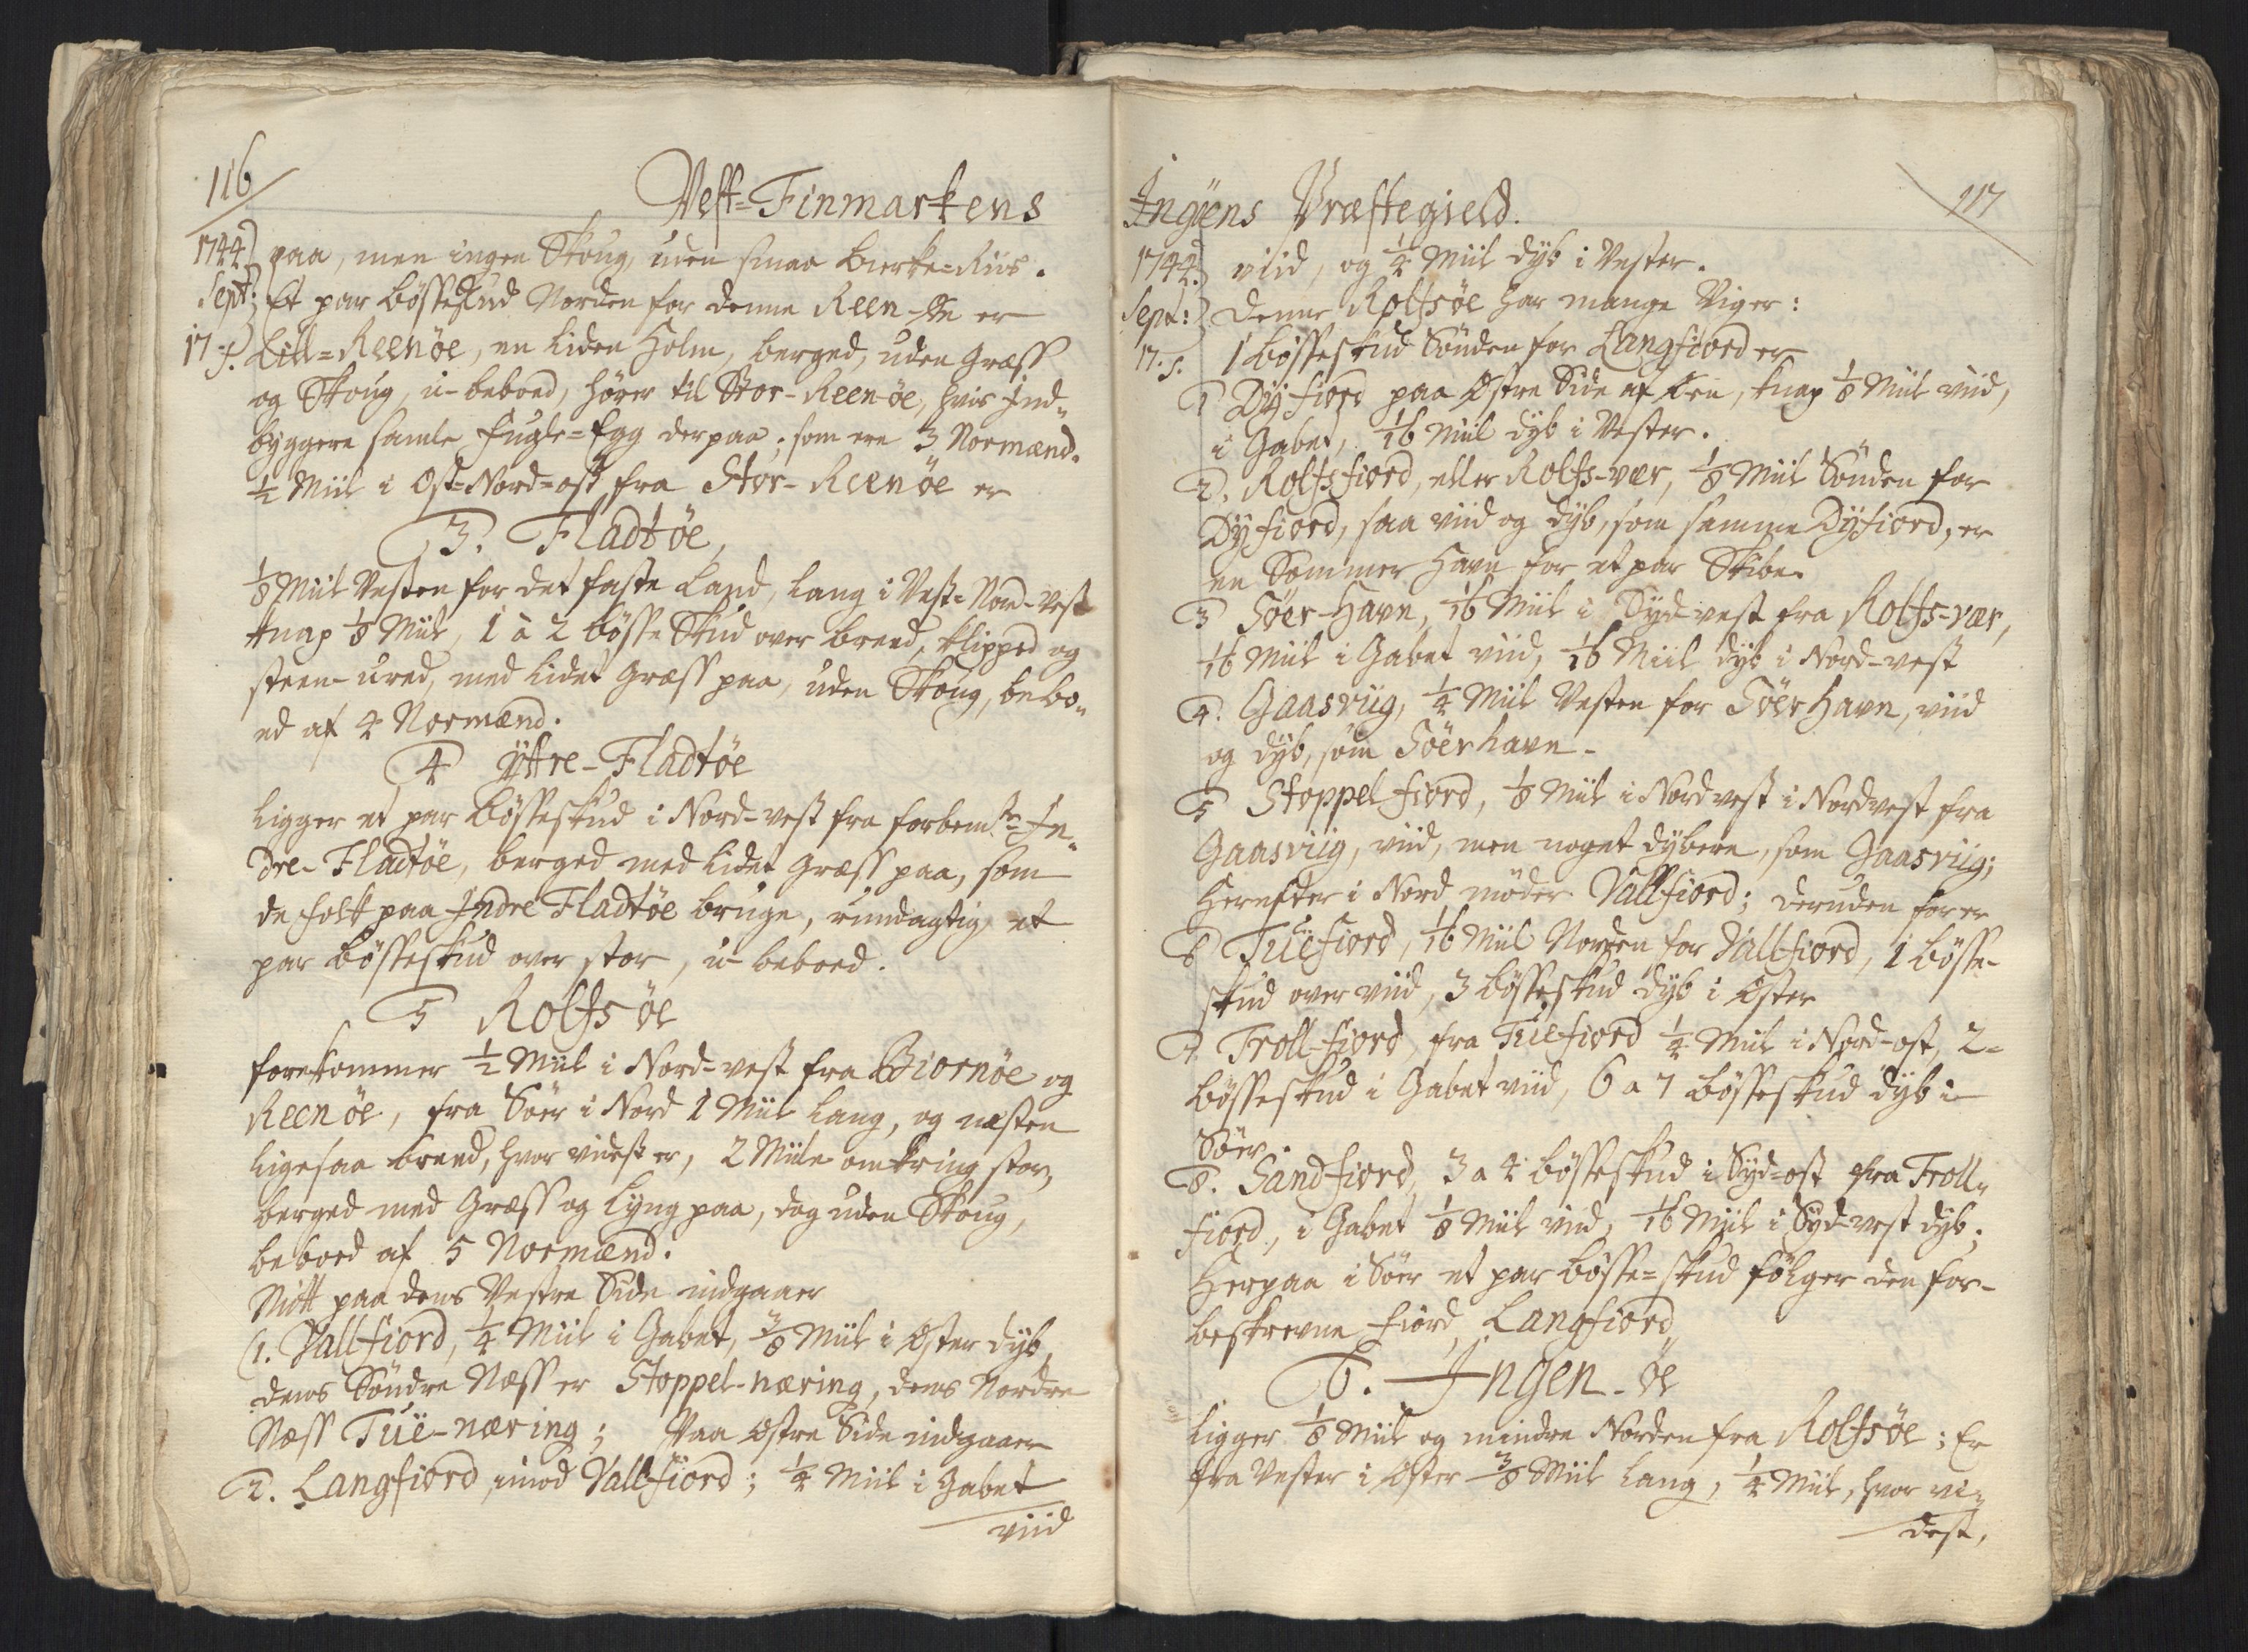 116
Vest-Finmarkens
1744. paa, men ingen Skoug, uden smaa birke-Riis.
Sept: Et par bösseskud Norden for denne Reen-Øe er
17. s. Lill-Reenöe, en liden Holm, berged, uden Græss
og Skoug, u-beboed, hörer til Stor-Reen-öe, hvis Ind-
byggere samle Fugle-Egg derpaa; som ere 3 Normænd.
1/2 Miil i Ost-Nord-ost fra Stor-Reenöe er
3. Fladtöe,
1/8 Miil Vesten for det faste Land, lang i Vest-Nord-Vest
knap 1/8 Miil, 1 à 2 bösse Skud over breed, klipped og
steen-ured, med lidet Græss paa, uden Skoug, bebo-
ed af 4 Normænd.
4 Yttre-Fladtöe
ligger et par bösseskud i Nord-vest fra forbem.te In-
dre-Fladtöe, berged med lidet Græss paa, som
de folk paa Indre Fladtöe bruge, rundagtig, et
par bösseskud over stor, u-beboed.
5 Rolfsöe
forekommer 1/2 Miil i Nord-vest fra Biornöe og
Reenöe, fra Söer i Nord 1 Miil lang, og næsten
ligesaa breed, hvor videst er, 2 Miile omkring stor,
berged med Græss og Lyng paa, dog uden Skoug,
beboed af 5 Normænd.
Mitt paa dens Vestre Side indgaaer
1. Vallfiord, 1/4 Miil i Gabet, 3/8 Miil i Oster dyb,
dens Söndre Næss er Stoppel-næring, dens Nordre
Næss Tüe-næring; Paa Ostre Side indgaaer
2. Langfiord, imod Vallfiord; 1/4 Miil i Gabet
viid
Ingöens Præstegield.
117
1744. viid, og 1/4 Miil dyb i Vester.
Sept: Denne Rolfsöe har mange Viger:
17. s. 1 bösseskud Sönden for Langfiord er
1 Dyfiord paa Ostre Side af Öen, knap 1/8 Miil viid,
i Gabet, 1/16 Miil dyb i Vester.
2. Rolfsfiord, eller Rolfs-vær, 1/8 Miil Sönden for
Dyfiord, saa viid og dyb, som samme Dyfiord, er
en Sommer Havn for et par Skibe.
3 Söer-Havn, 1/16 Miil i Sydvest fra Rolfs-vær,
1/16 Miil i Gabet viid, 1/16 Miil dyb i Nord-vest
4. Gaasviig, 1/4 Miil Vesten for Söerhavn, viid
og dyb, som Söerhavn.
5 Stoppelfiord, 1/8 Miil i Nordvest i Nordvest fra
Gaasviig, viid, men noget dybere, som Gaasviig;
Herefter i Nord möder Vallfiord; deruden for er
6 Tüefiord, 1/16 Miil Norden for Vallfiord, 1 bösse-
skud over viid, 3 bösseskud dyb i Oster
7. Troll-fiord, fra Tüefiord 1/4 Miil i Nord-ost, 2-
bösseskud i Gabet viid, 6 a 7 bösseskud dyb i
Söer.
8. Sandfiord, 3 a 4 bösseskud i Syd-ost fra Troll-
fiord, i Gabet 1/8 Miil viid, 1/16 Miil i Syd-vest dyb;
Herpaa i Söer et par bösse-skud fölger den for-
beskrevne fiord Langfiord
6. Ingen-öe
ligger 1/8 Miil og mindre Norden fra Rolfsöe; Er
fra Vester i Oster 3/8 Miil lang, 1/4 Miil, hvor vi-
dest,